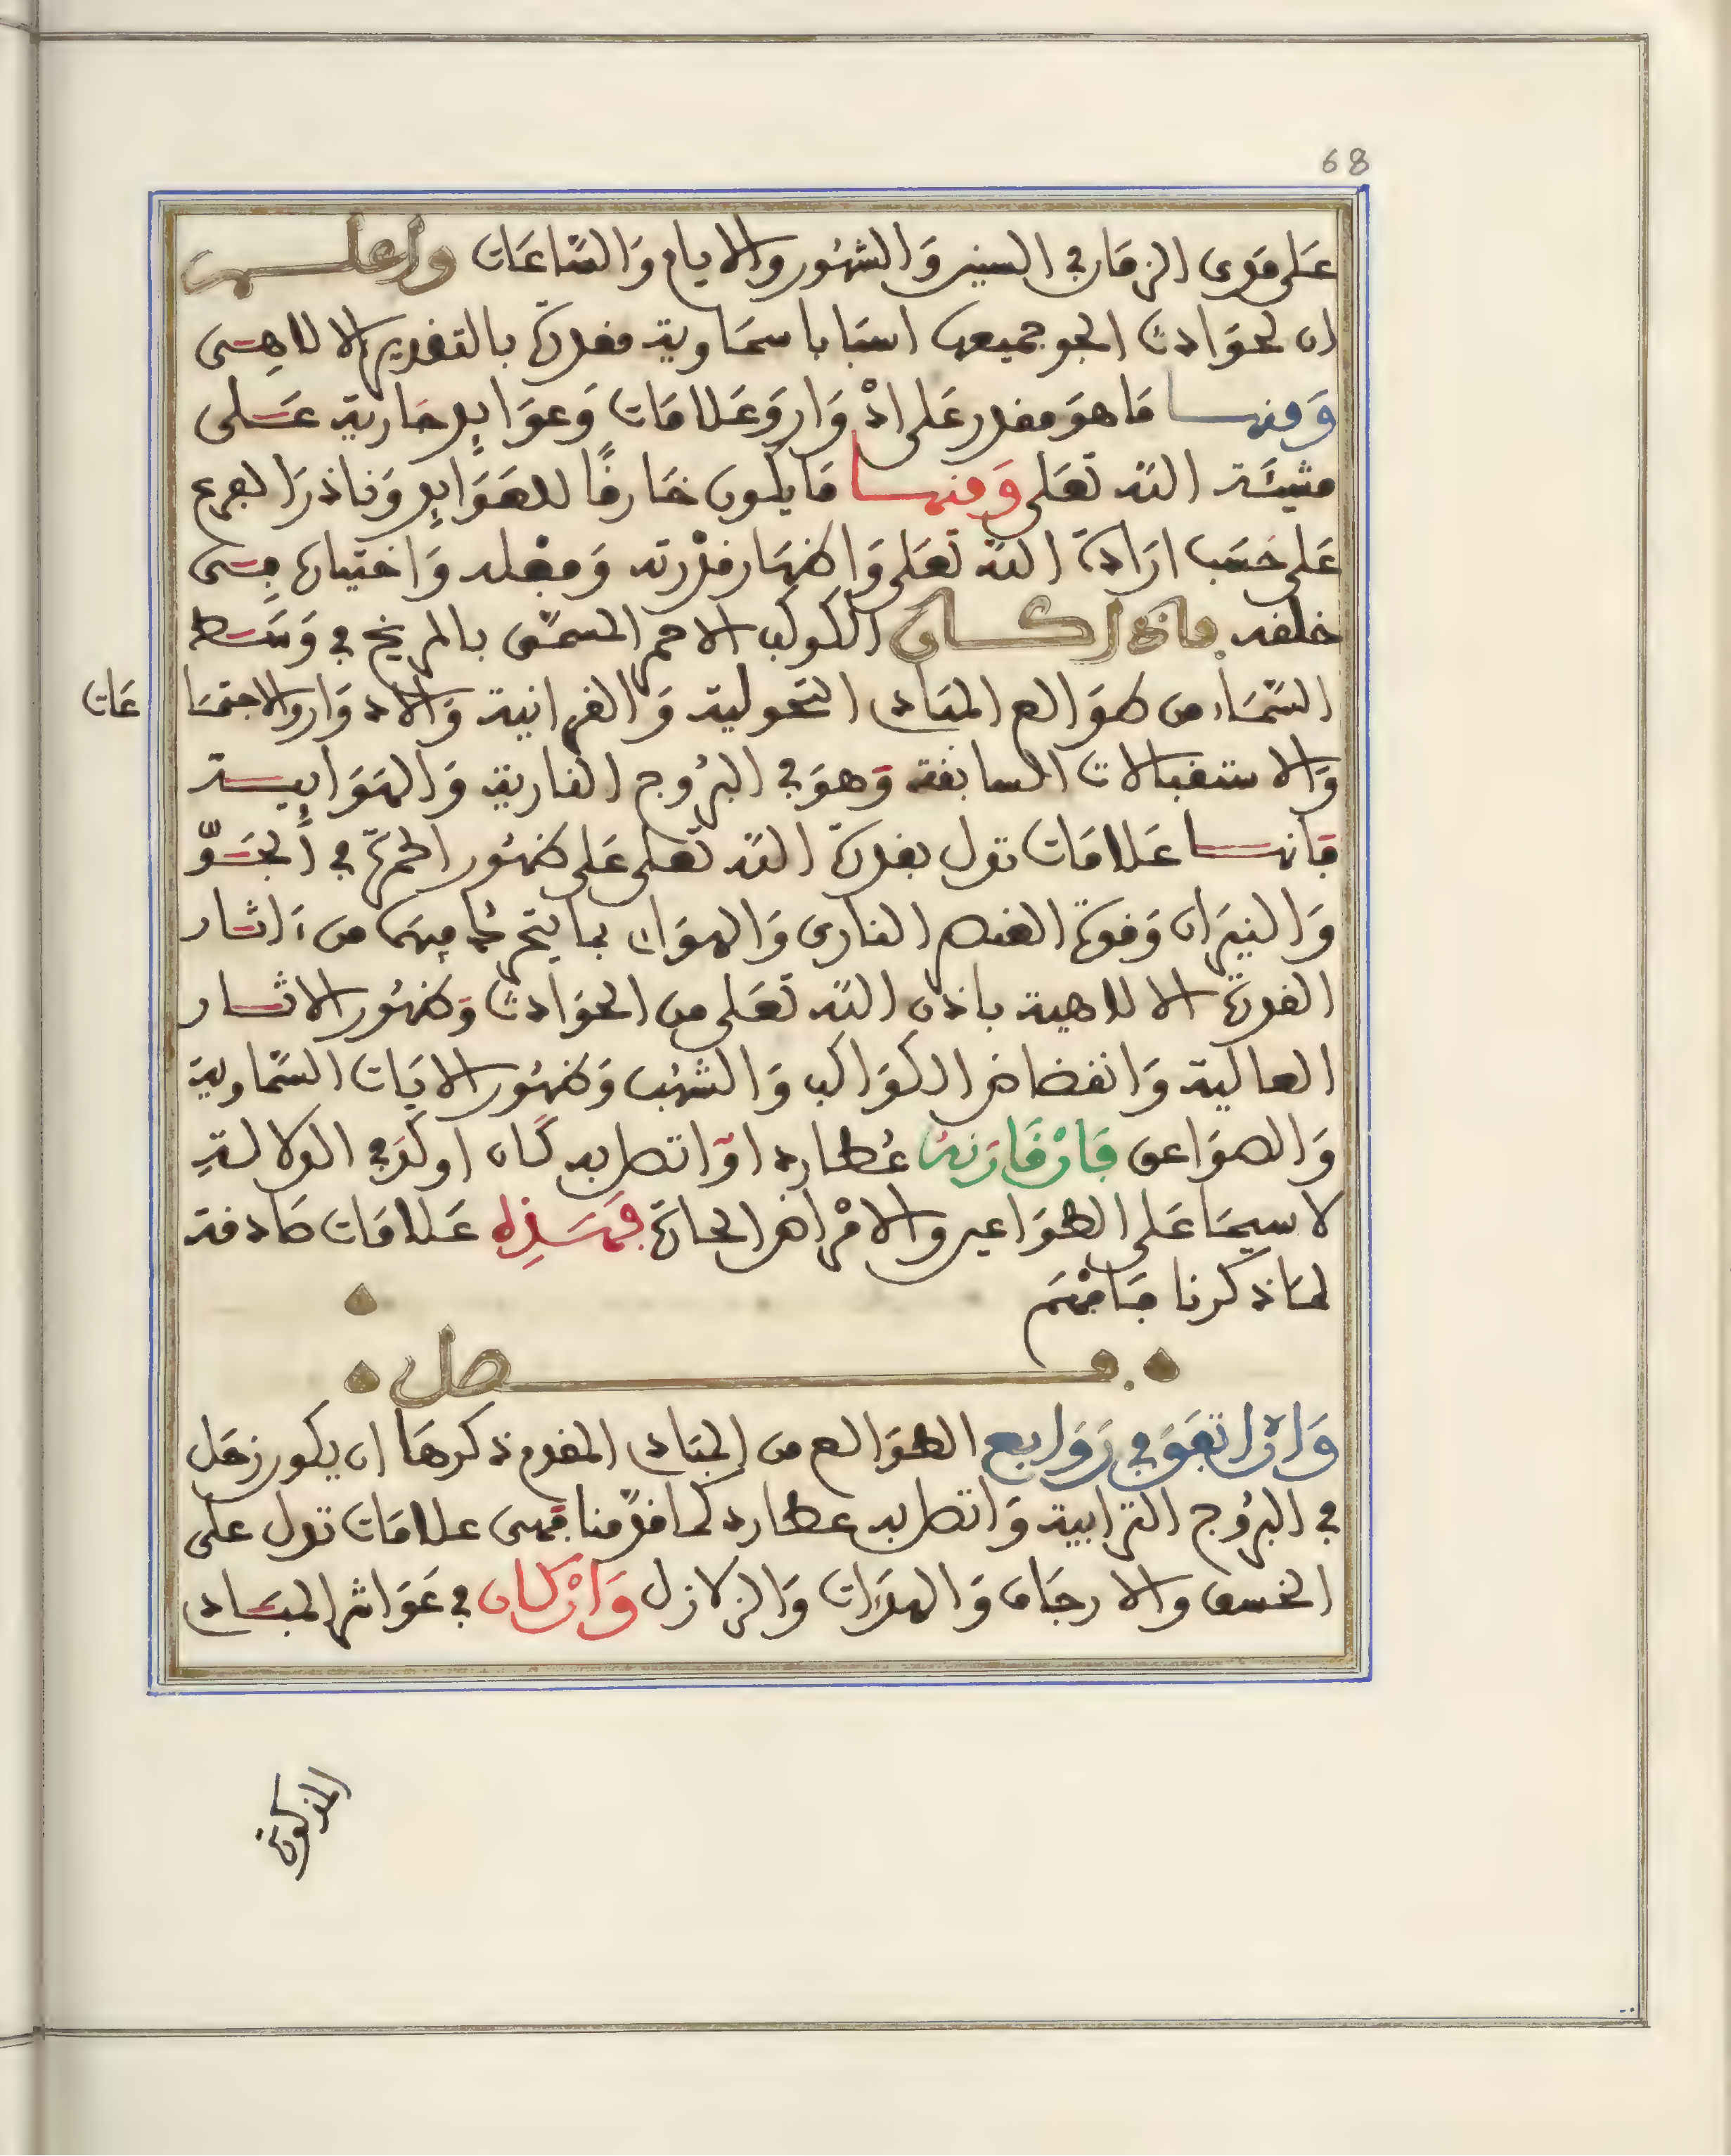 68
عَلى مَوى الزمَان في السنين وَالشهُور والايام وَالسَّاعَات واعلم
ان لحوَادث الجو جميعها اسبَابا سمَاوية مقدرة بالتقدير الالاهى
وَمنها مَا هوَ مقدر علَى ادْوَار وَعَلامَات وَعوَايد جَارية عَلى
مشيئَة الله تعَلى وَمنها مَا يكون خَارقًا للعَوَايد وَنادرَ الوقوع
عَلى حَسَب ارَادة الله تعَلى وَاظهَار قدْرته وَفعْله وَاختياره فى
خلقه فاذا كان الكوكب الاحمر المسمَّى بالمريخ في وَسَط
السَّمَاء من طوَالع المبَادى التحولية وَالقرانية وَالادوَار والاجتمَا
عَات
وَالاستقبالات السابقة وَهوَ في البرُوج النارية وَالهَوَايية
فانها عَلامَات تدل بقدرة الله تعَلى عَلى ظهُور الحمرة في الجَوّ
وَالنيرَان وَقوة العنصر النارى وَالهوَاء بما يتحرك فيهَا من ءاثار
القدرة الالاهية باذن الله تعَلى من الحوَادث وَظهُور الاثار
العالية وَانقضاض الكوَاكب وَالشهُب وَظهُور الايَات السَّماوية
وَالصوَاعق فَانْ قَارَنهُ عُطارد اوَ اتصل به كَان اوكَد في الدلالة
لا سيمَا عَلى الطوَاعين والامْرَاض الحادة فهَذِه عَلامَات صَادقة
لمَا ذكرنا فَافهَم
فصل
وَاذا اتفَقَ في رَوَابع الطوَالع من المبَادى المقدم ذكرهَا ان يكون زحَل
في البرُوج الترابية وَاتصل به عطارد كما قدَّمنا فهى علامَات تدل على
الخسف والارجَاف وَالهدَّات وَالزلازل وَانْ كَان في عَوَاشر المبَادى
المذكورة